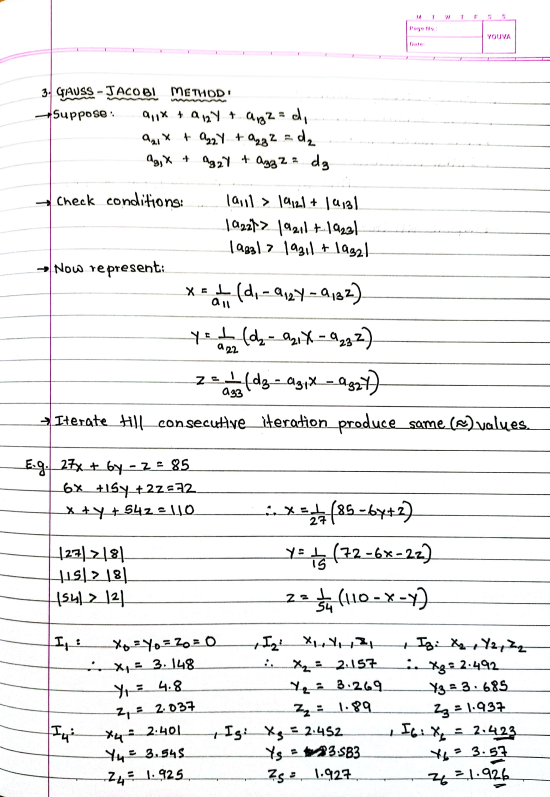 M T W T F S S
Page No.:
Date:
YOUVA
3. GAUSS-JACOBI METHOD:
→ Suppose: a₁₁x + a₁₂y + a₁₃z = d₁
a₂₁x + a₂₂y + a₂₃z = d₂
a₃₁x + a₃₂y + a₃₃z = d₃
→ Check conditions: |a₁₁| > |a₁₂| + |a₁₃|
|a₂₂| > |a₂₁| + |a₂₃|
|a₃₃| > |a₃₁| + |a₃₂|
→ Now represent:
x = 1/a₁₁ (d₁ - a₁₂y - a₁₃z)
y = 1/a₂₂ (d₂ - a₂₁x - a₂₃z)
z = 1/a₃₃ (d₃ - a₃₁x - a₃₂y)
→ Iterate till consecutive iteration produce same (≈) values.
E.g. 27x + 6y - z = 85
6x + 15y + 2z = 72
x + y + 54z = 110 ∴ x = 1/27 (85 - 6y + z)
|27| > |8| y = 1/15 (72 - 6x - 2z)
|15| > |8|
|54| > |2| z = 1/54 (110 - x - y)
I₁: x₀ = y₀ = z₀ = 0 , I₂: x₁, y₁, z₁ , I₃: x₂, y₂, z₂
∴ x₁ = 3.148 ∴ x₂ = 2.157 ∴ x₃ = 2.492
y₁ = 4.8 y₂ = 3.269 y₃ = 3.685
z₁ = 2.037 z₂ = 1.89 z₃ = 1.937
I₄: x₄ = 2.401 , I₅: x₅ = 2.452 , I₆: x₆ = 2.423
y₄ = 3.545 y₅ = 3.583 y₆ = 3.57
z₄ = 1.925 z₅ = 1.927 z₆ = 1.926